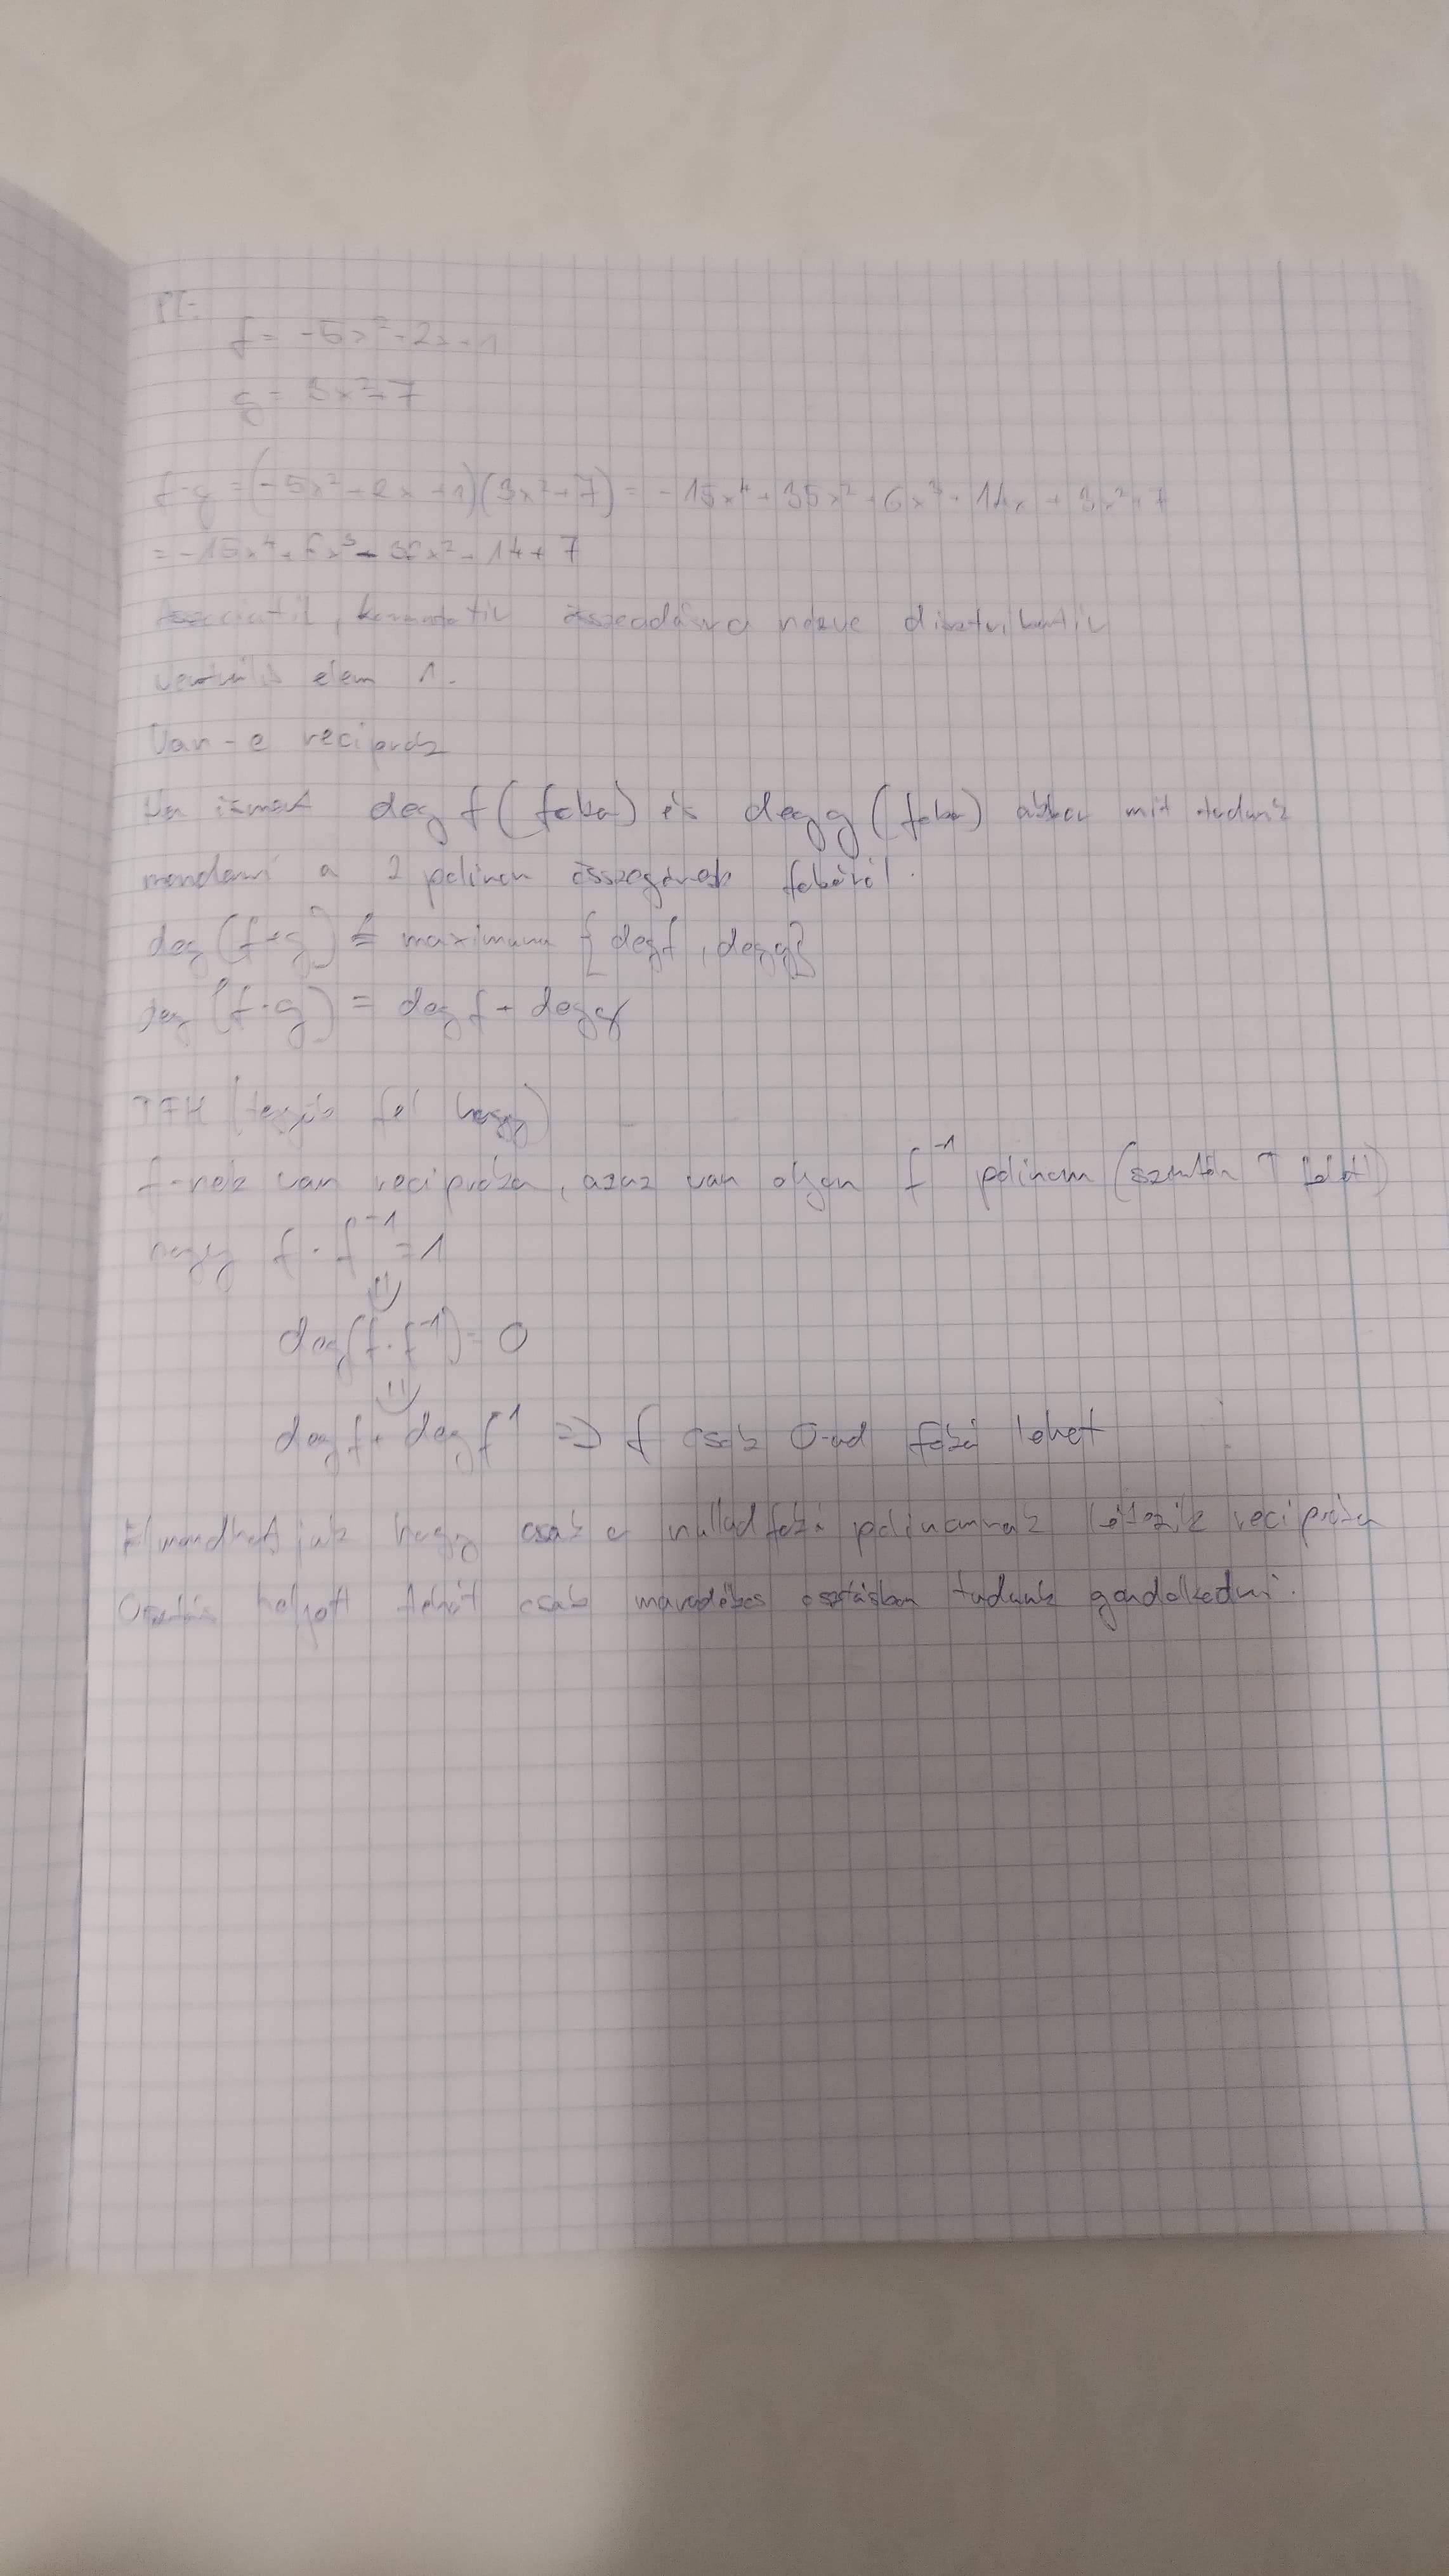 Pl:
f = -5x² + 2x + 1
g = 3x² + 7
f·g = (-5x² + 2x + 1)(3x² + 7) = -15x⁴ + 35x² + 6x³ + 14x + 3x² + 7
= -15x⁴ + 6x³ - 32x² + 14 + 7
Asszociatív, kommutatív összeadásra nézve disztributív
neutrális elem 1.
Van-e reciprok
Ha ismert deg f (foka) és deg g (foka) akkor mit tudunk
mondani a 2 polinom összegének fokáról.
deg (f+g) ≤ maximum {deg f, deg g}
deg (f·g) = deg f + deg g
TFH (tegyük fel hogy)
f-nek van reciproka, azaz van olyan f⁻¹ polinom (szintén T feletti)
hogy f · f⁻¹ = 1
⇓
deg(f·f⁻¹) = 0
deg f + deg f⁻¹ => f csak 0-ad fokú lehet
Elmondhatjuk hogy csak a nullad fokú polinomnak létezik reciproka
Osztás helyett tehát csak maradékos osztásban tudunk gondolkodni.